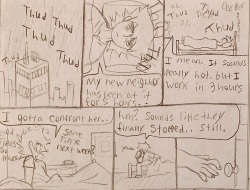 Thud
Thud
Thud
Thud
My new neighbor
has been at it
for 5 hours..
Thud
Thud
I mean. It sounds
really hot. but I
work in 3 hours
I gotta confront her..
Same
time
next week?
huh? Sounds like they
finally stopped.. Still.